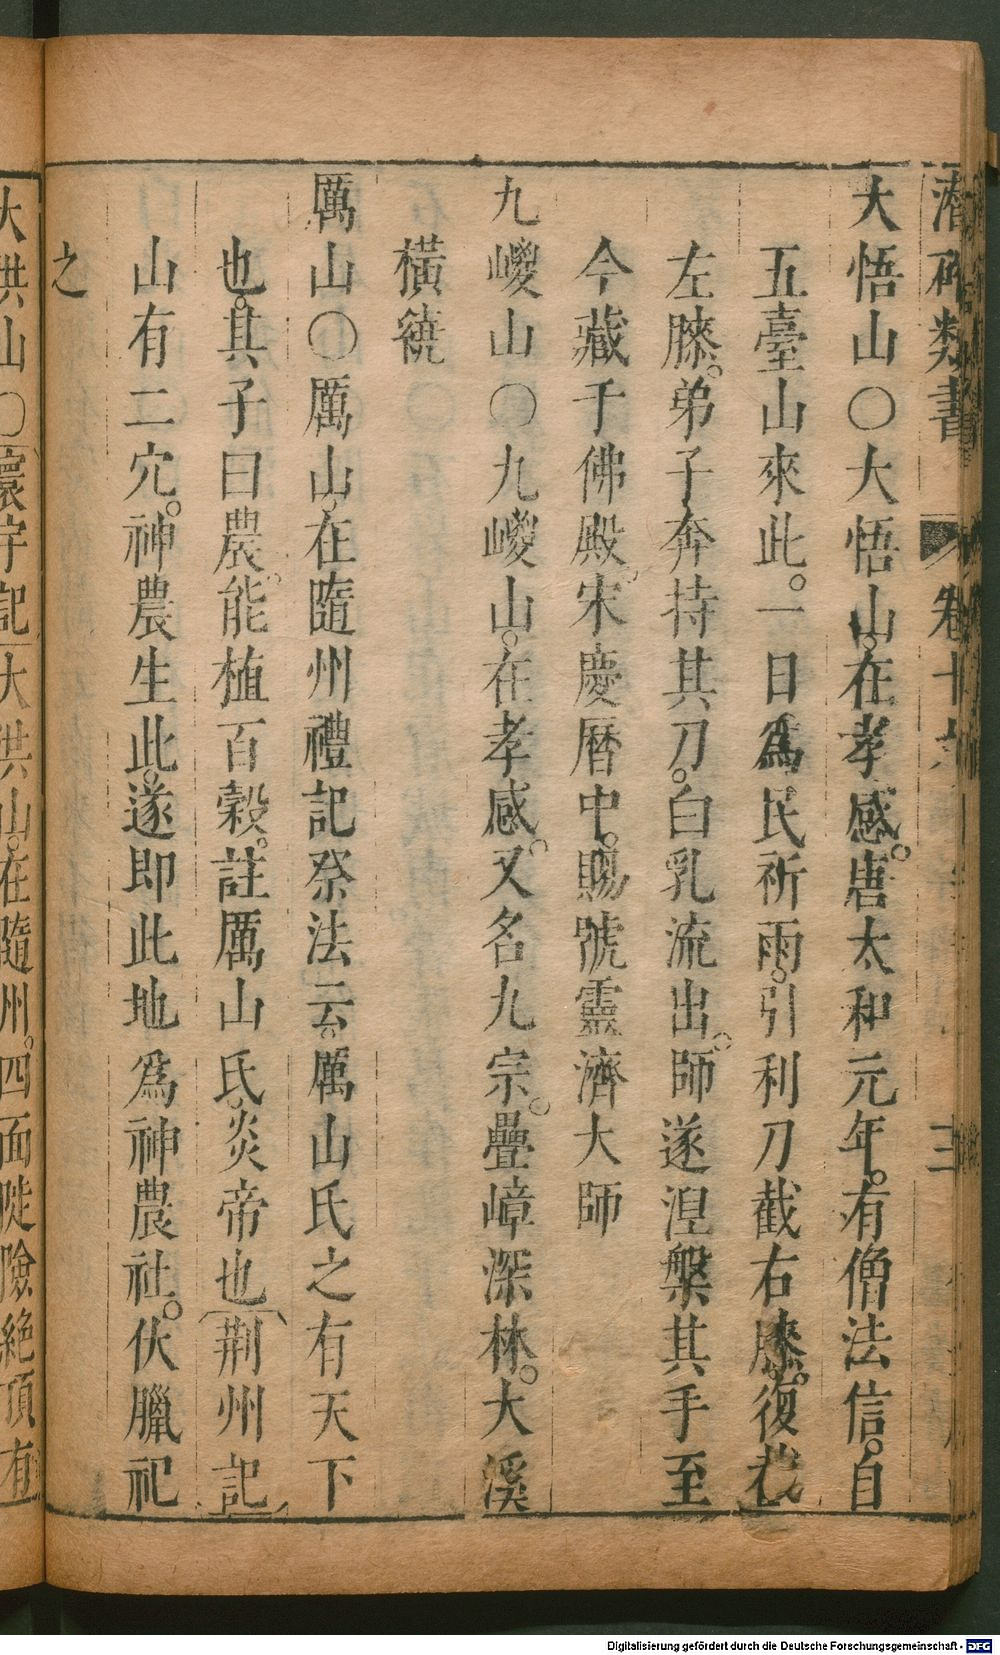 潛确類書 卷十 三
大悟山○大悟山。在孝感。唐太和元年。有僧法信。自
五臺山來此。一日爲民祈雨。引利刀截右膝。復截
左膝。弟子奔持其刀。白乳流出。師遂湼槃其手至
今藏于佛殿。宋慶曆中。賜號靈濟大師
九嵕山○九嵕山。在孝感。又名九宗。疊嶂深林。大溪
橫繞
厲山○厲山。在隨州禮記祭法云。厲山氏之有天下
也。其子曰農。能植百穀。註厲山氏。炎帝也〔荆州記〕
山有二穴。神農生此。遂即此地爲神農社。伏臘祀
之
大洪山○〔寰宇記〕大洪山。在隨州。四面陡險絶頂有
Digitalisierung gefördert durch die Deutsche Forschungsgemeinschaft - DFG